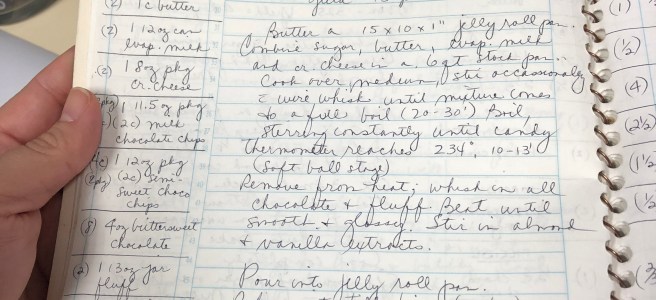 (2) 1 c butter
(2) 1 12 oz can
evap. milk
(2) 1 8 oz pkg
cr. cheese
1 11.5 oz pkg
(2c) milk
chocolate chips
1 12 oz pkg
(2c) semi-
sweet choco
chips
(8) 4 oz bittersweet
chocolate
(2) 1 13 oz jar
fluff
Butter a 15 x 10 x 1" jelly roll pan.
Combine sugar, butter, evap. milk
and cr. cheese in a 6 qt stock pan.
Cook over medium, stir occassionaly
c̄ wire whisk until mixture comes
to a full boil (20-30') Boil,
stirring constantly until candy
thermometer reaches 234°, 10-13'
(soft ball stage)
Remove from heat; whisk in all
chocolate & fluff Beat until
smooth & glossy. Stir in almond
& vanilla extracts.
Pour into jelly roll pan.
(1)
(½)
(4)
(2½)
(1½